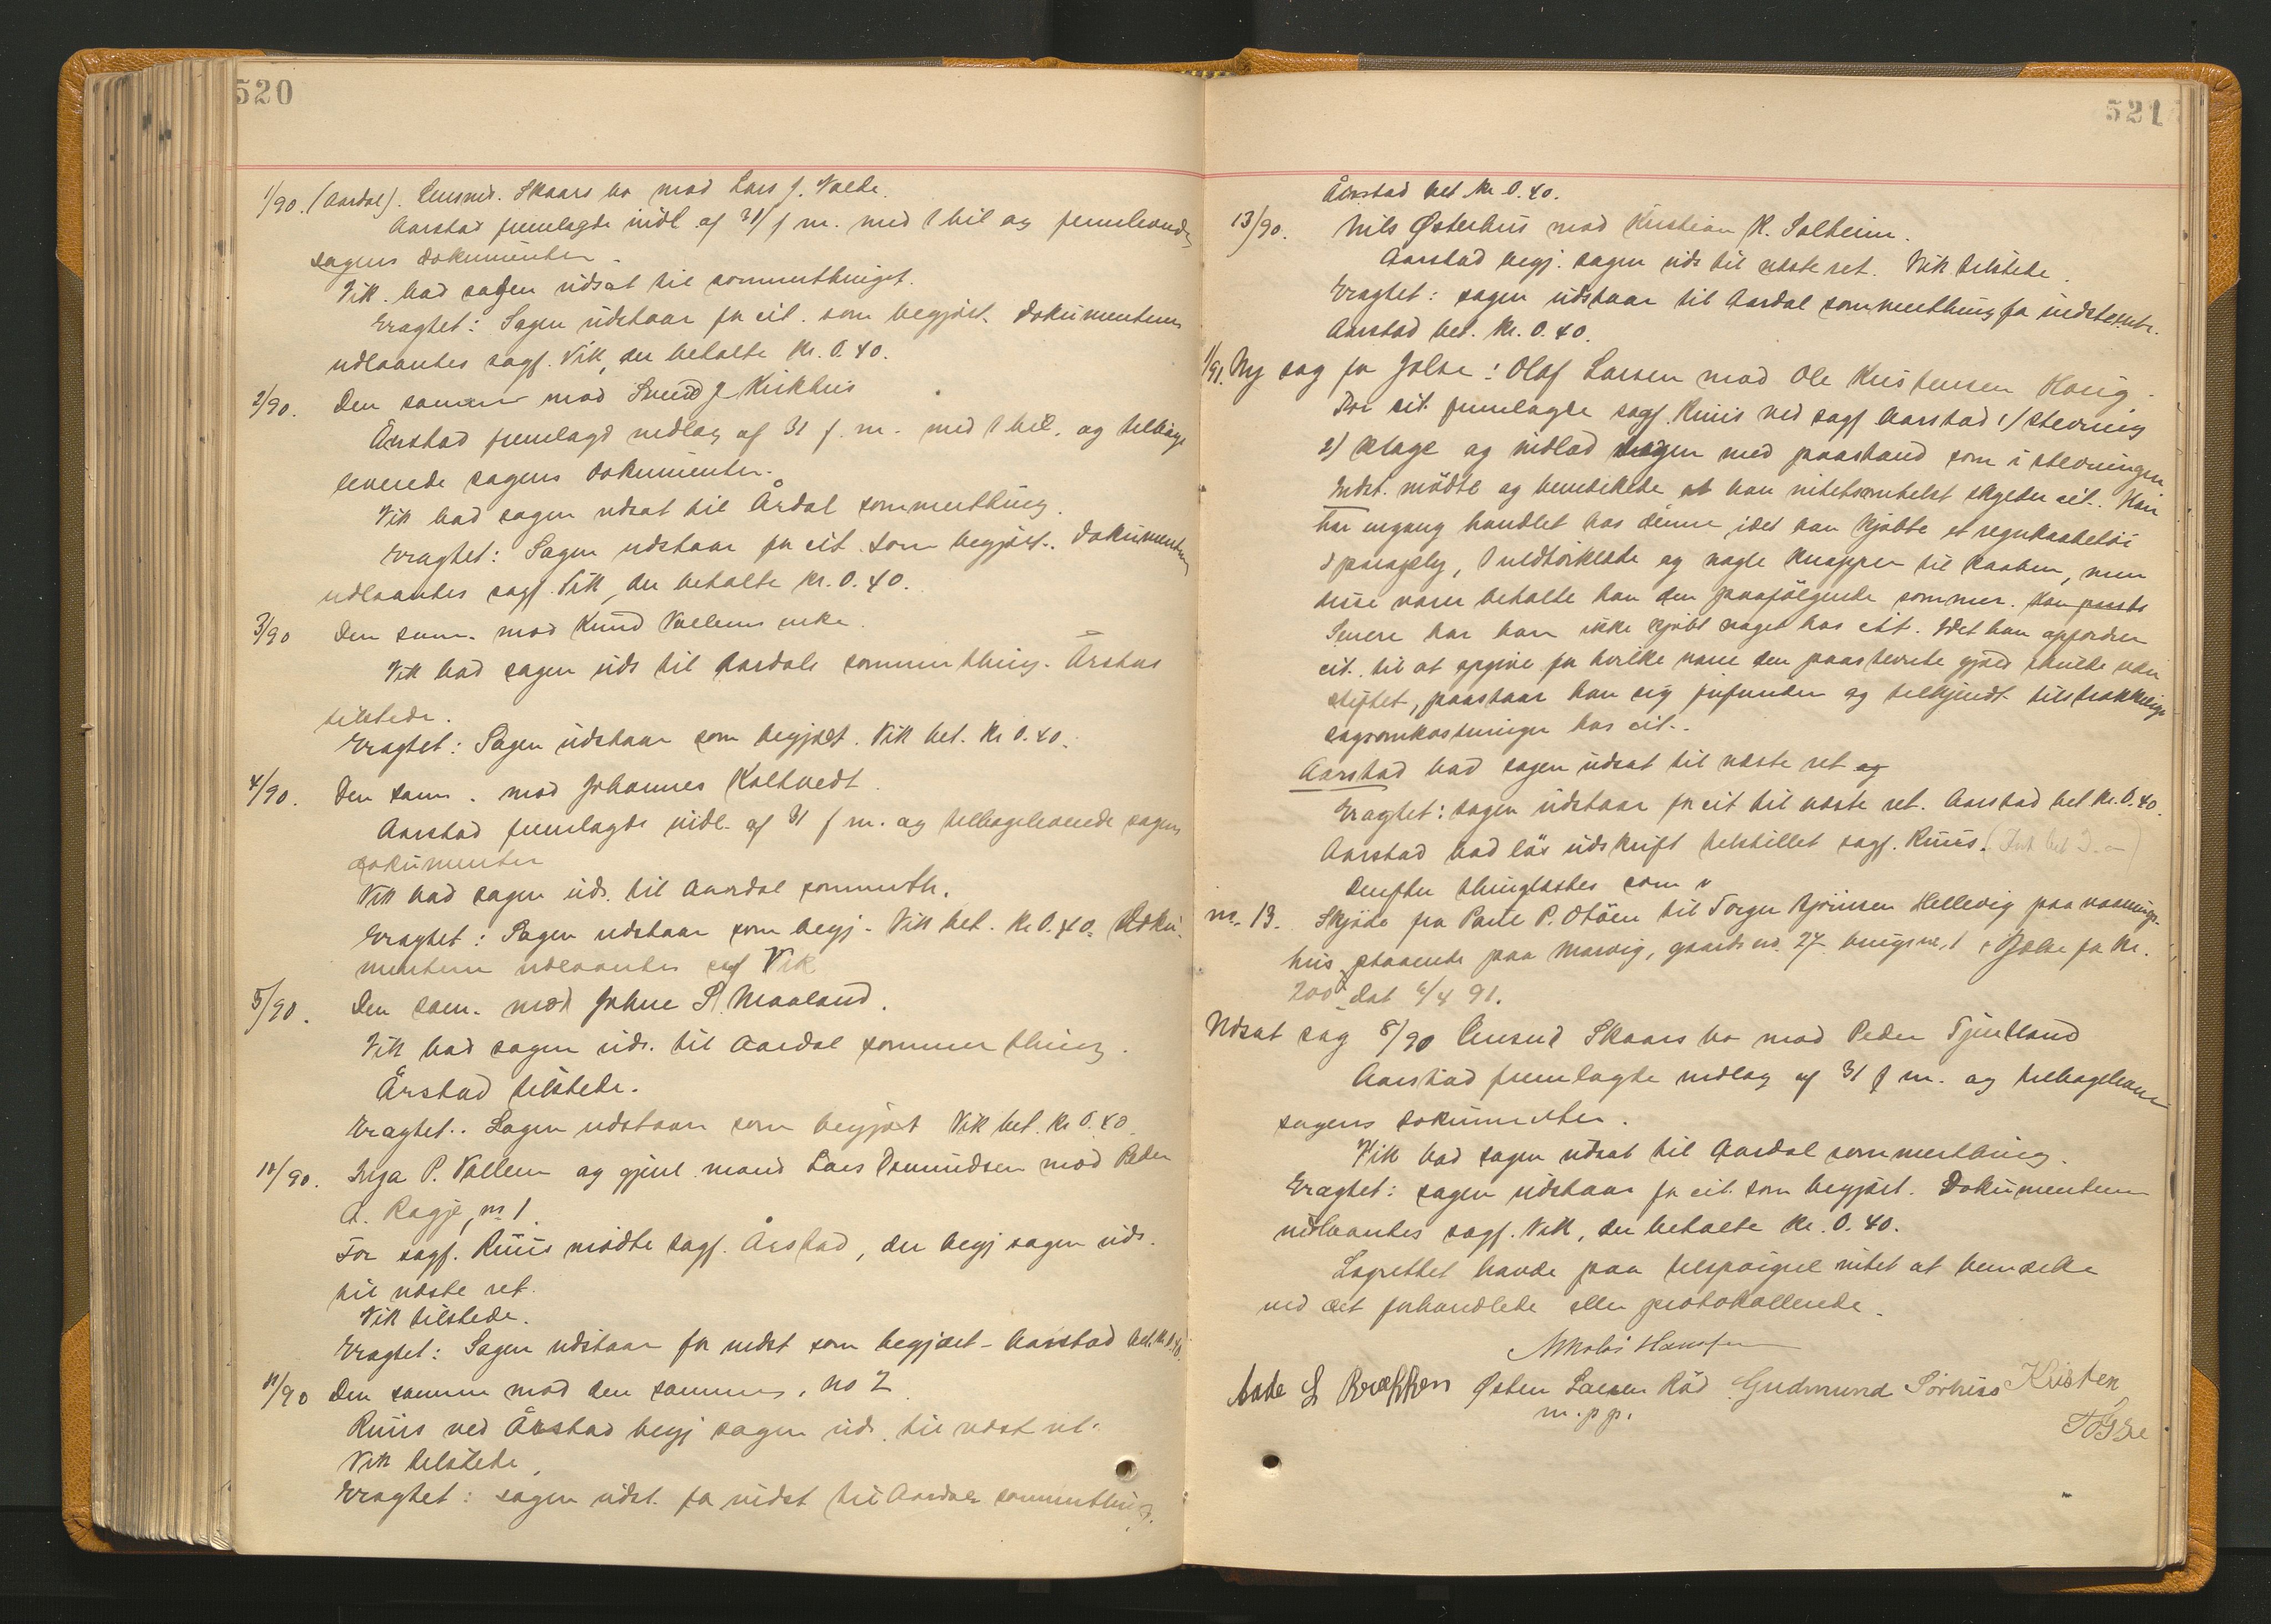 520
1/90. (Aardal). Lensmd. Skaars bo mod Lars J. Valde.
Aarstad fremlagde indl. af 31/ f. m. med 1 bil og fremleverede
sagens dokumenter.
Vik bad sagen udsat til sommerthinget.
Eragtet: Sagen udstaar for cit. som begjært. Dokumenterne
udlaantes sagf. Vik, der betalte Kr. 0.40.
2/90. Den samme mod Svend J. Kirkhus
Årstad fremlagd indlæg af 31 f. m. med 1 bil. og tilbage
leverede sagens dokumenter.
Vik bad sagen udsat til Årdal sommerthing.
Eragtet: Sagen udstaar for cit. som begjært. Dokumenterne
udlaantes sagf. Vik, der betalte Kr. 0.40.
3/90 Den sam. mod Knud Vallems enke.
Vik bad sagen uds til Aardals sommerthing. Årstad
tilstede.
Eragtet: Sagen udstaar som begjært. Vik bet. Kr 0.40.
4/90. Den sam. mod Johannes Kaltvedt.
Aarstad fremlagde indl. af 31 f. m. og tilbageleverede sagens
dokumenter
Vik bad sagen uds. til Aardal sommerth.
Eragtet: Sagen udstaar som begj. Vik bet. Kr 0.40. Doku-
menterne udlaantes sagf Vik
5/90. Den sam. mod Johne S. Maaland.
Vik bad sagen uds. til Aardal sommerthing.
Årstad tilstede.
Eragtet.. Sagen udstaar som begjært Vik bet. Kr 0.40.
10/90. Inga P. Vallem og gjenl. mand Lars Osmundsen mod Peder
A. Ragje, no 1.
For sagf. Ruus mødte sagf. Årstad, der begj sagen uds.
til næste ret.
Vik tilstede.
Eragtet: Sagen udstaar for indst som begjært – Aarstad bet. Kr 0.40.
11/90 Den samme mod den samme, no 2
Ruus ved Årstad begj sagen uds. til næst ret.
Vik tilstede,
Eragtet: sagen udst. for indst til Aardals sommerthing.
521
Årstad bet. Kr 0.40.
13/90. Nils Østerhus mod Kristian K. Solheim.
Aarstad begj. sagen uds til næste ret. Vik tilstede.
Eragtet: sagen udstaar til Aardal sommerthing for indstevnte.
Aarstad bet. Kr. 0.40.
1/91. Ny sag fra Jelse: Olaf Larsen mod Ole Kristensen Haug.
For cit. fremlagde sagf. Ruus ved sagf Aarstad 1/ stevning
2) klage og indlod sagen med paastand som i stevningen
Indst. mødte og bemærkede at han intetsomhelst skylder cit. Han
har engang handlet hos denne idet han kjøbte et regnkaabetøi
1 paraply, 1 uldtørklæde og nogle knapper til kaaben, men
disse varer betalte han den paafølgende sommer.
Senere har han ikke kjøbt noget hos cit. Idet han opfordrer
cit. til at opgive for hvilke varer den paastevnte gjæld skulde være
stiftet, paastaar han sig frifunden og tilkjendt tilstrækkelige
sagsomkostninger hos cit..
Aarstad bad sagen udsat til næste ret og
Eragtet: sagen udstaar for cit til næste ret. Aarstad bet Kr. 0.40.
Aarstad bad løs udskrift tilstillet sagf. Ruus.
Derefter thinglæstes som
no. 13. Skjøde fra Paul P. Otøen til Torger Bjørnsen Hellevig paa vaanings-
hus staaende paa Marvig, gaards no. 27 brugs no. 1 i Jelse for Kr.
200 dat 6/4 91.
Udsat sag 8/90 Lensmd Skaars bo mod Peder Tjentland
Aarstad fremlagde indlæg af 31 f m. og tilbageleverede
sagens dokumenter.
Vik bad sagen udsat til Aardal sommerthing.
Eragtet: sagen udstaar for cit. som begjært. Dokumenterne
udlaantes sagf. Vik, der betalte Kr. 0.40.
Lagrettet havde paa tilspørgsel intet at bemærke
ved det forhandlede eller protokollerede.
Nikolai Hansen
Aade L Brækken Østen Larsen Rød Gudmund Sørhus Kristen
m. p. p.